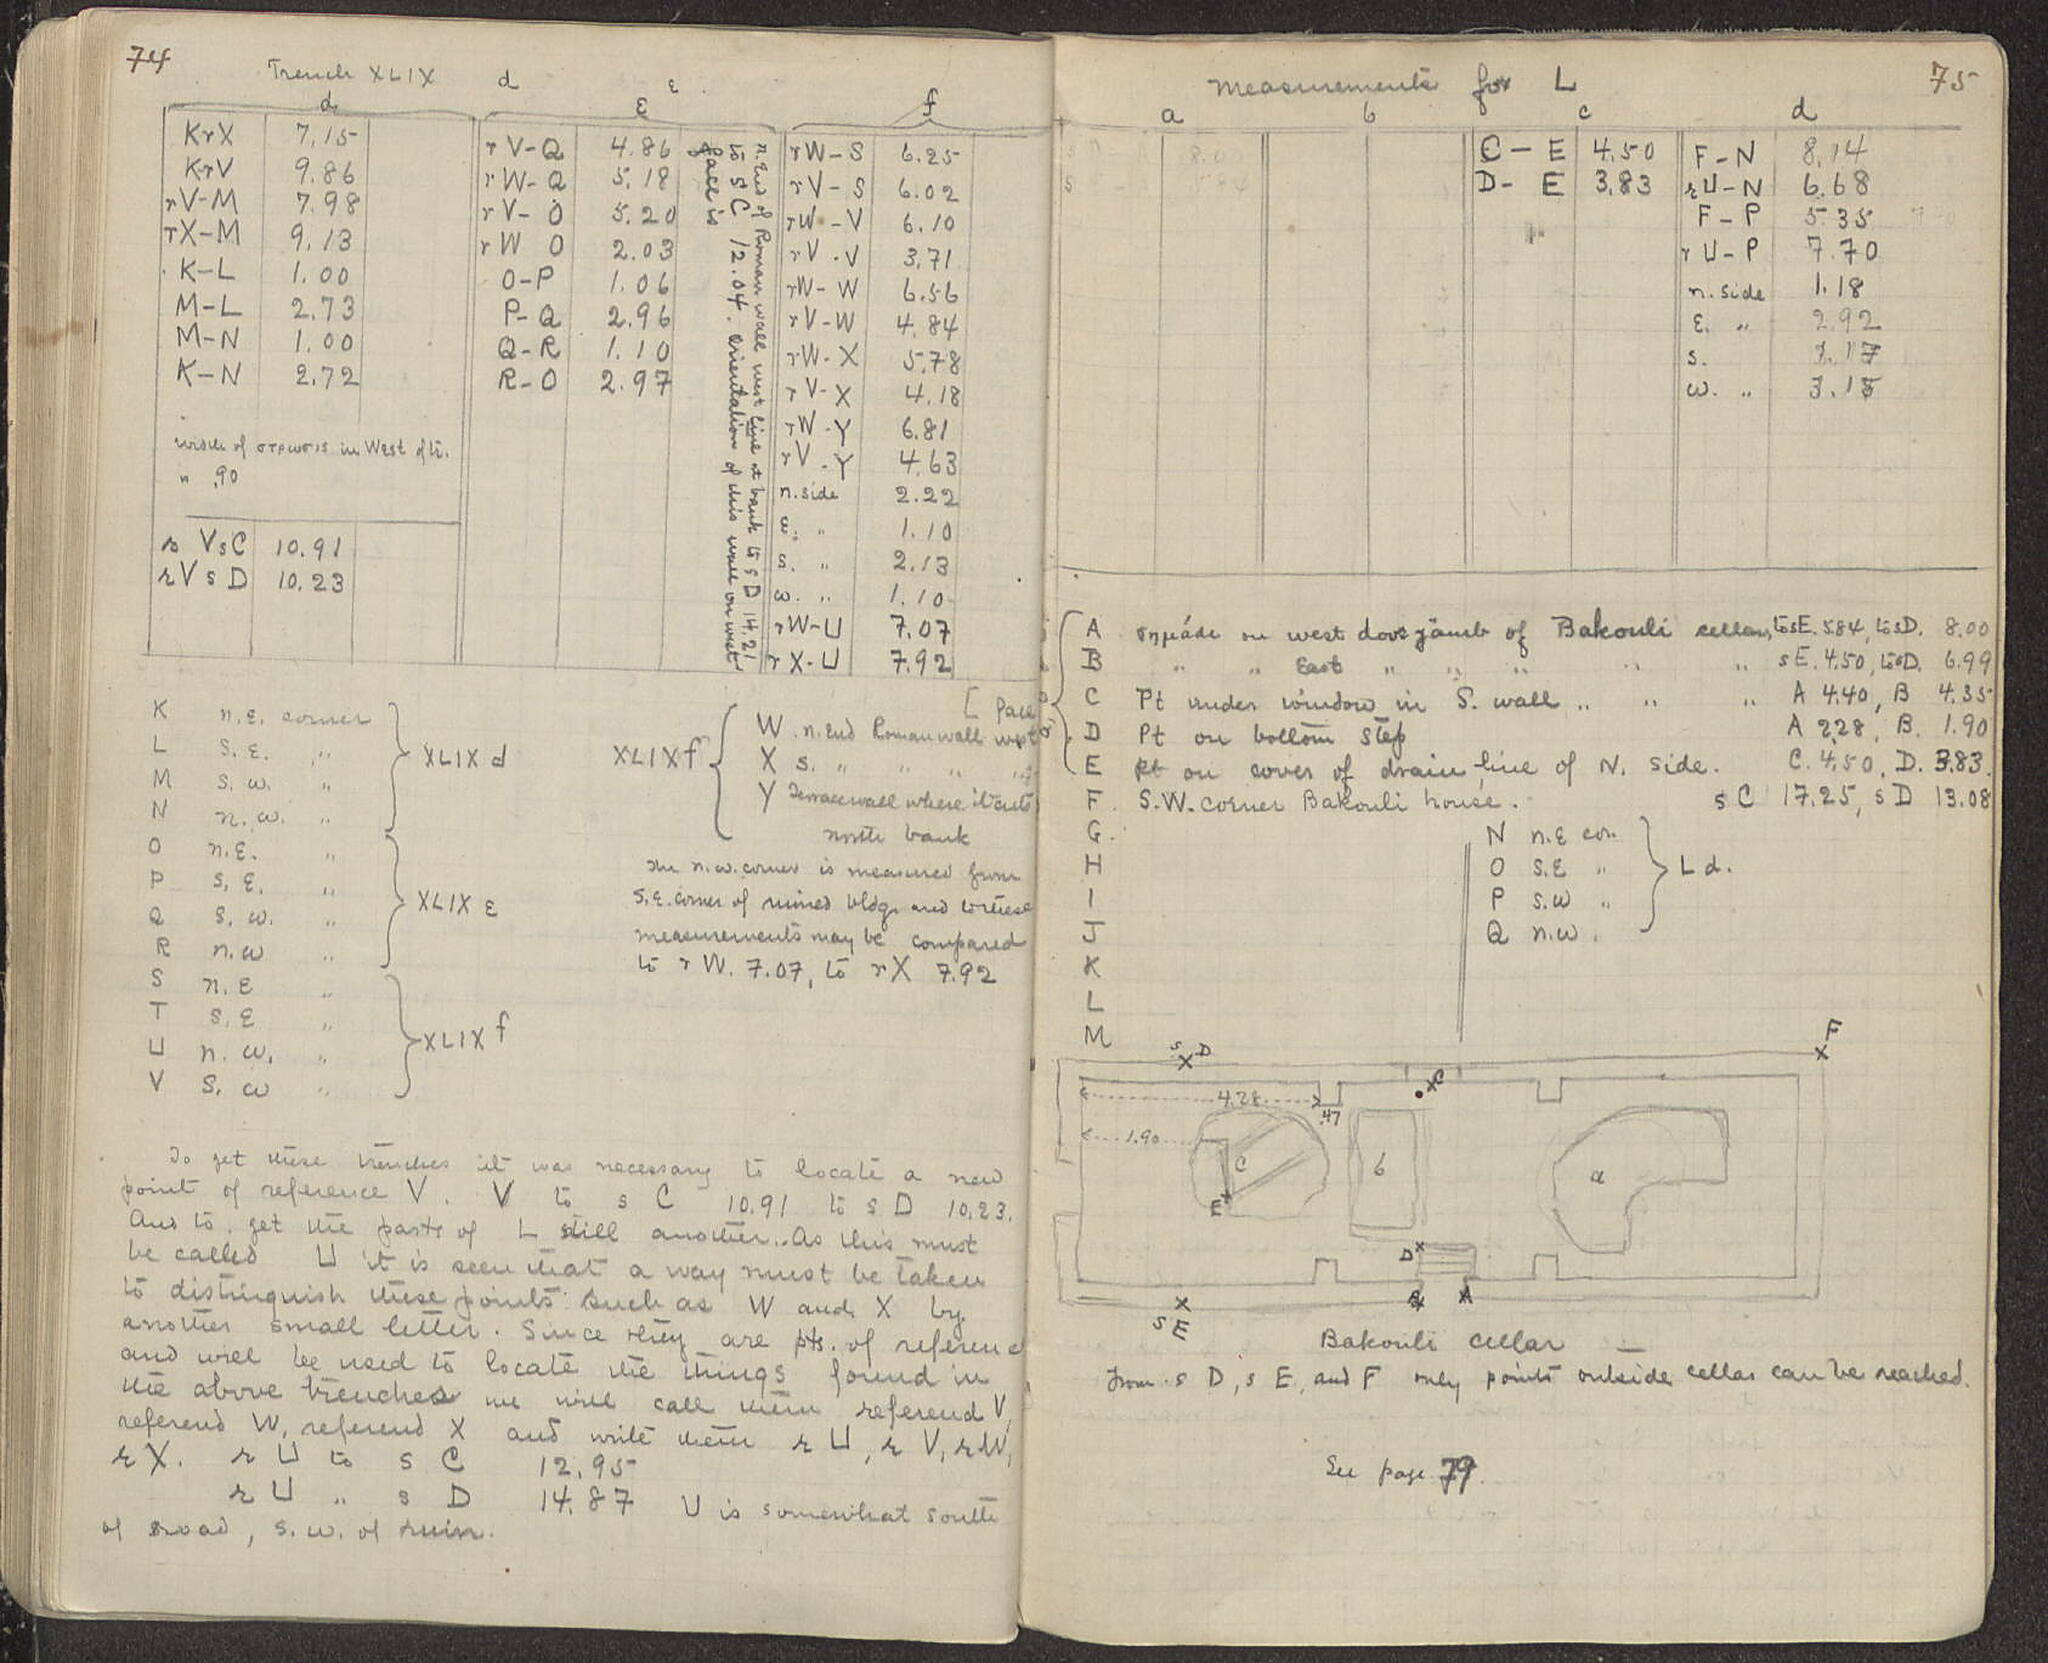 74
Trench XLIX d ε
d ε f
KrX 7.15
KrV 9.86
rV-M 7.98
rX-M 9.13
K-L 1.00
M-L 2.73
M-N 1.00
K-N 2.72
width of στρωσις in West of tr.
" .90
r VsC 10.91
rV s D 10.23
rV-Q 4.86
rW-Q 5.18
rV-O 5.20
rW O 2.03
O-P 1.06
P-Q 2.96
Q-R 1.10
R-O 2.97
n. End of Roman wall west line at bank to s D 14.21
to s C 12.04. Orientation of this wall on west
face is
rW-S 6.25
rV-S 6.02
rW-V 6.10
rV-V 3.71
rW-W 6.56
rV-W 4.84
rW-X 5.78
rV-X 4.18
rW-Y 6.81
rV-Y 4.63
n. side 2.22
w. " 1.10
s. " 2.13
w. " 1.10
rW-U 7.07
r X-U 7.92
K n.e. corner
L S.E. "
M S.W. "
N n.w. "
XLIX d
O n.E. "
P S.E. "
Q S.W. "
R n.w "
XLIX ε
S n.E "
T S.E "
U n.w. "
V S.w "
XLIX f
XLIX f
[ face
W n. End Roman wall west
X s. " " " "
Y Terrace wall where it cuts
north bank
The n.w. corner is measured from
S.E. corner of ruined bldg. and to these
measurements may be compared
to r W. 7.07, to r X 7.92
To get these trenches it was necessary to locate a new
point of reference V. V to s C 10.91 to s D 10.23.
And to get the parts of L still another. As this must
be called U it is seen that a way must be taken
to distinguish these points such as W and X by
another small letter. Since they are pts. of reference
and will be used to locate the things found in
the above trenches we will call them referend V,
referend W, referend X and write them r U, r V, r W,
r X. r U to s C 12.95
r U " s D 14.87 U is somewhat south
of road, s.w. of ruin.
75
Measurements for L
a b c d
C - E 4.50
D - E 3.83
F-N 8.14
rU-N 6.68
F-P 5.35
r U-P 7.70
n. side 1.18
E. " 2.92
s. 1.17
w. " 3.15
A σημάδι on west door jamb of Bakouli cellar, to sE. 5.84, to sD. 8.00
B " " East " " " " " sE. 4.50, to sD. 6.99
C Pt under window in S. wall " " " A 4.40, B 4.35
D Pt on bottom step A 2.28, B. 1.90
E pt on cover of drain line of N. side. C. 4.50, D. 3.83.
F S.W. corner Bakouli house. s C 17.25, s D 13.08
G
H
I
J
K
L
M
N n.E cor.
O S.E "
P S.W "
Q n.w.
L d.
s D
F
C
4.28
.47
1.90
C
b
a
E
D
B A
s E
Bakouli cellar
From s D, s E, and F only points outside cellar can be reached.
See page 79.